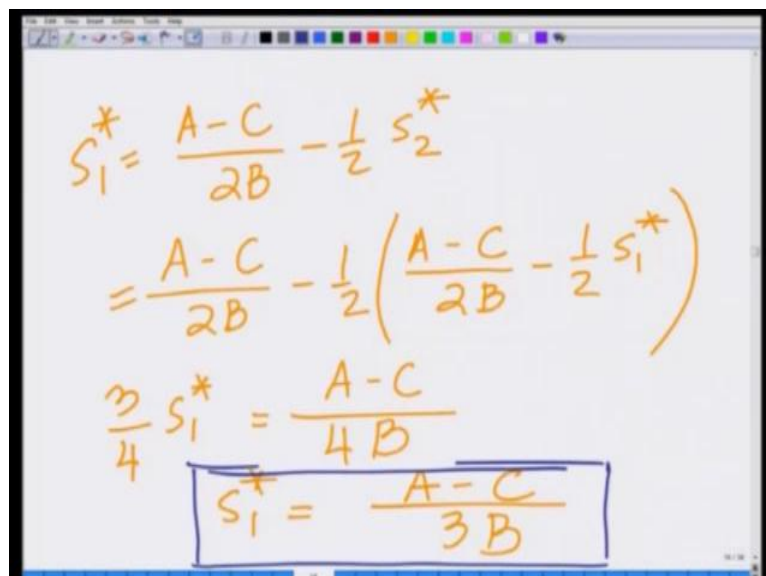 File Edit View Insert Actions Tools Help
S₁* = (A - C)/(2B) - 1/2 S₂*
= (A - C)/(2B) - 1/2 ((A - C)/(2B) - 1/2 S₁*)
3/4 S₁* = (A - C)/(4B)
S₁* = (A - C)/(3B)